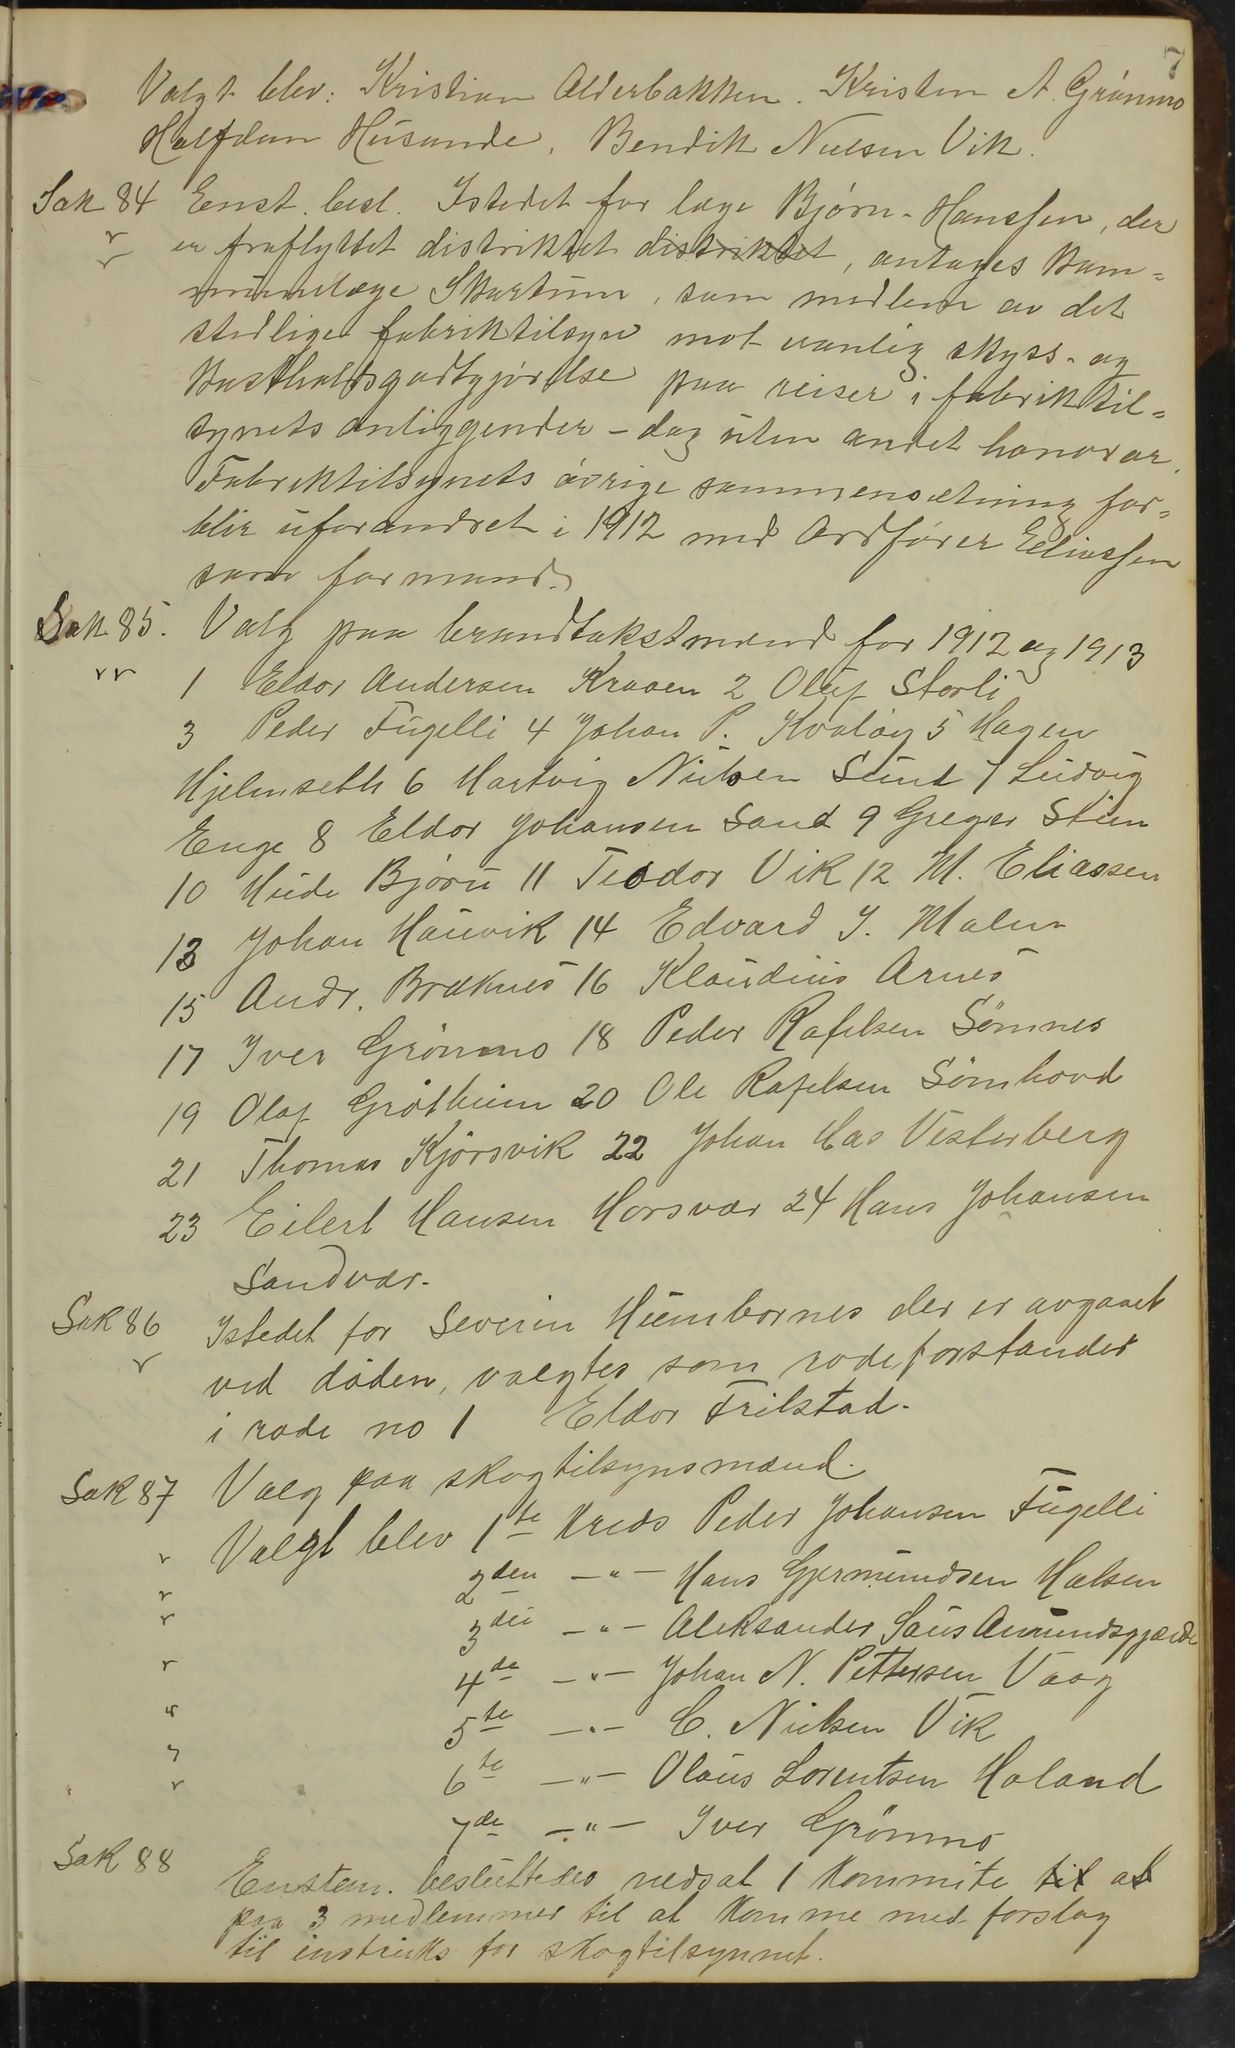 7
Valgt blev: Kristian Alderbakken. Kristen A. Grönmo
Halfdan Husande, Bendik Nielsen Vik.
Sak 84 Enst. besl. Istedet for læge Bjørn-Hanssen, der
er fraflyttet distriktet distriktet, antages kom=
munelæge Skartum, som medlem av det
stedlige fabriktilsyn mot vanlig skyss- og
kostholdsgodtgjörelse paa reiser i fabriktil=
synets anliggender - dog uten andet honorar.
Fabriktilsynets øvrige sammensætning for=
blir uforandret i 1912 med Ordfører Eliassen
som formand.
Sak 85. Valg paa brandtakstmænd for 1912 og 1913
1 Eldor Andersen Kraaen 2 Oluf Storli
3 Peder Fugelli 4 Johan P. Kvaløy 5 Hagen
Hjelmseth 6 Hartvig Nielsen Sund 7 Ludvig
Enge 8 Eldor Johansen Sand 9 Greger Stien
10 Bjøru 11 Teodor Vik 12 M. Eliassen
13 Johan Hauvik 14 Edvard J. Malm
15 Andr. Bræknes 16 Klaudius Arnes
17 Iver Grönmo 18 Peder Rafelsen Sömnes
19 Olaf Gröttheim 20 Ole Rafelsen Sömhovd
21 Thomas Kjörsvik 22 Johan Has Vesterberg
23 Eilert Hansen Horsvær 24 Hans Johansen
Sandvær.
Sak 86 Istedet for Severin Humbornes der er avgaaet
ved döden, valgtes som rodeforstander
i rode no 1 Eldor Trilstad.
Sak 87 Valg paa skogtilsynsmænd.
Valgt blev 1te Kreds Peder Johansen Fugelli
2den -"- Hans Gjermundsen Halsen
3die -"- Aleksander Saus Amundsgjærde
4de -"- Johan N. Pettersen Vaag
5te -"- C. Nielsen Vik
6te -"- Olaus Lorentsen Holand
7de -"- Iver Grönmo
Sak 88
Enstem. besluttedes nedsat 1 Kommite til at
paa 3 medlemmer til at komme med forslag
til instruks for skogtilsynnet.